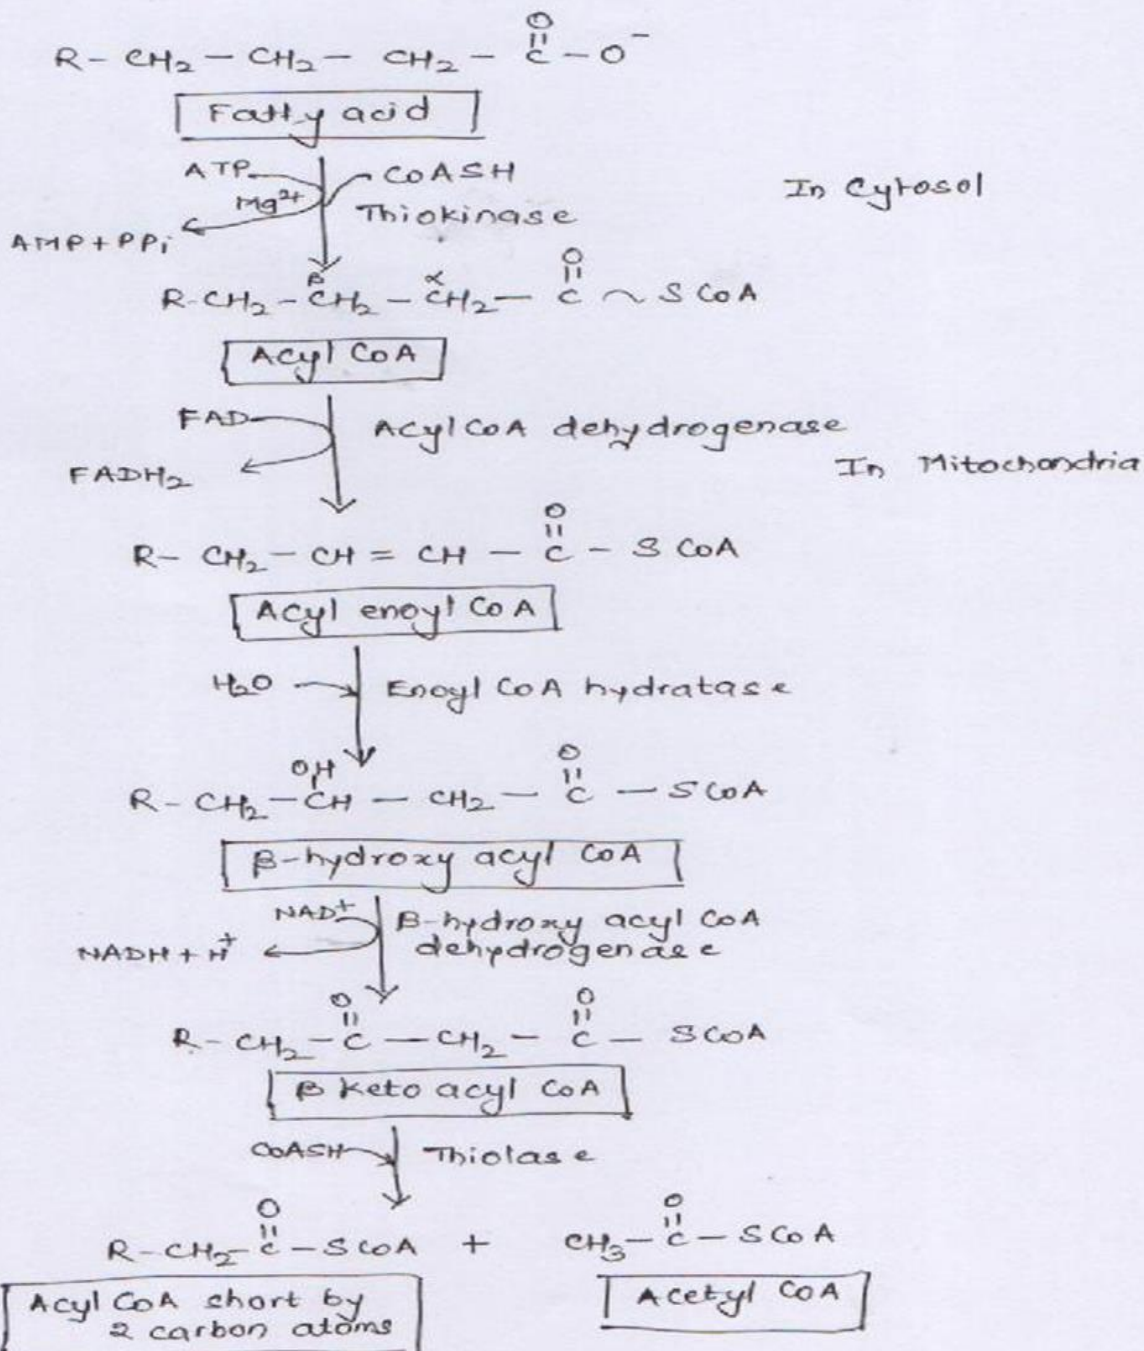 R- CH2 - CH2 - CH2 - C - O-
O
Fatty acid
ATP CoASH
Mg2+
Thiokinase
In Cytosol
AMP + PPi
β α O
R-CH2 - CH2 - CH2 - C ~ S CoA
Acyl CoA
FAD
Acyl CoA dehydrogenase
In Mitochondria
FADH2
O
R- CH2 - CH = CH - C - S CoA
Acyl enoyl CoA
H2O Enoyl CoA hydratase
OH O
R - CH2 - CH - CH2 - C - S CoA
β-hydroxy acyl CoA
NAD+ β-hydroxy acyl CoA
NADH + H+ dehydrogenase
O O
R - CH2 - C - CH2 - C - S CoA
β keto acyl CoA
CoASH Thiolase
O O
R - CH2 - C - S CoA + CH3 - C - S CoA
Acyl CoA short by
2 carbon atoms
Acetyl CoA